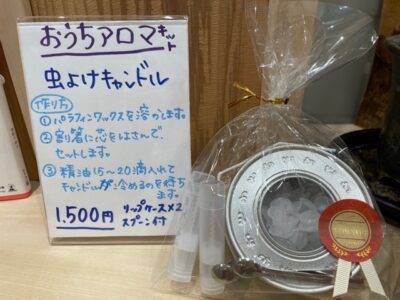 おうちアロマキット
虫よけキャンドル
作り方
①パラフィンワックスを溶かします。
②割り箸に芯をはさんで、
セットします。
③精油15〜20滴入れて
キャンドルが冷めるのを待ち
ます。
1.500円 リップケース×2
スプーン付